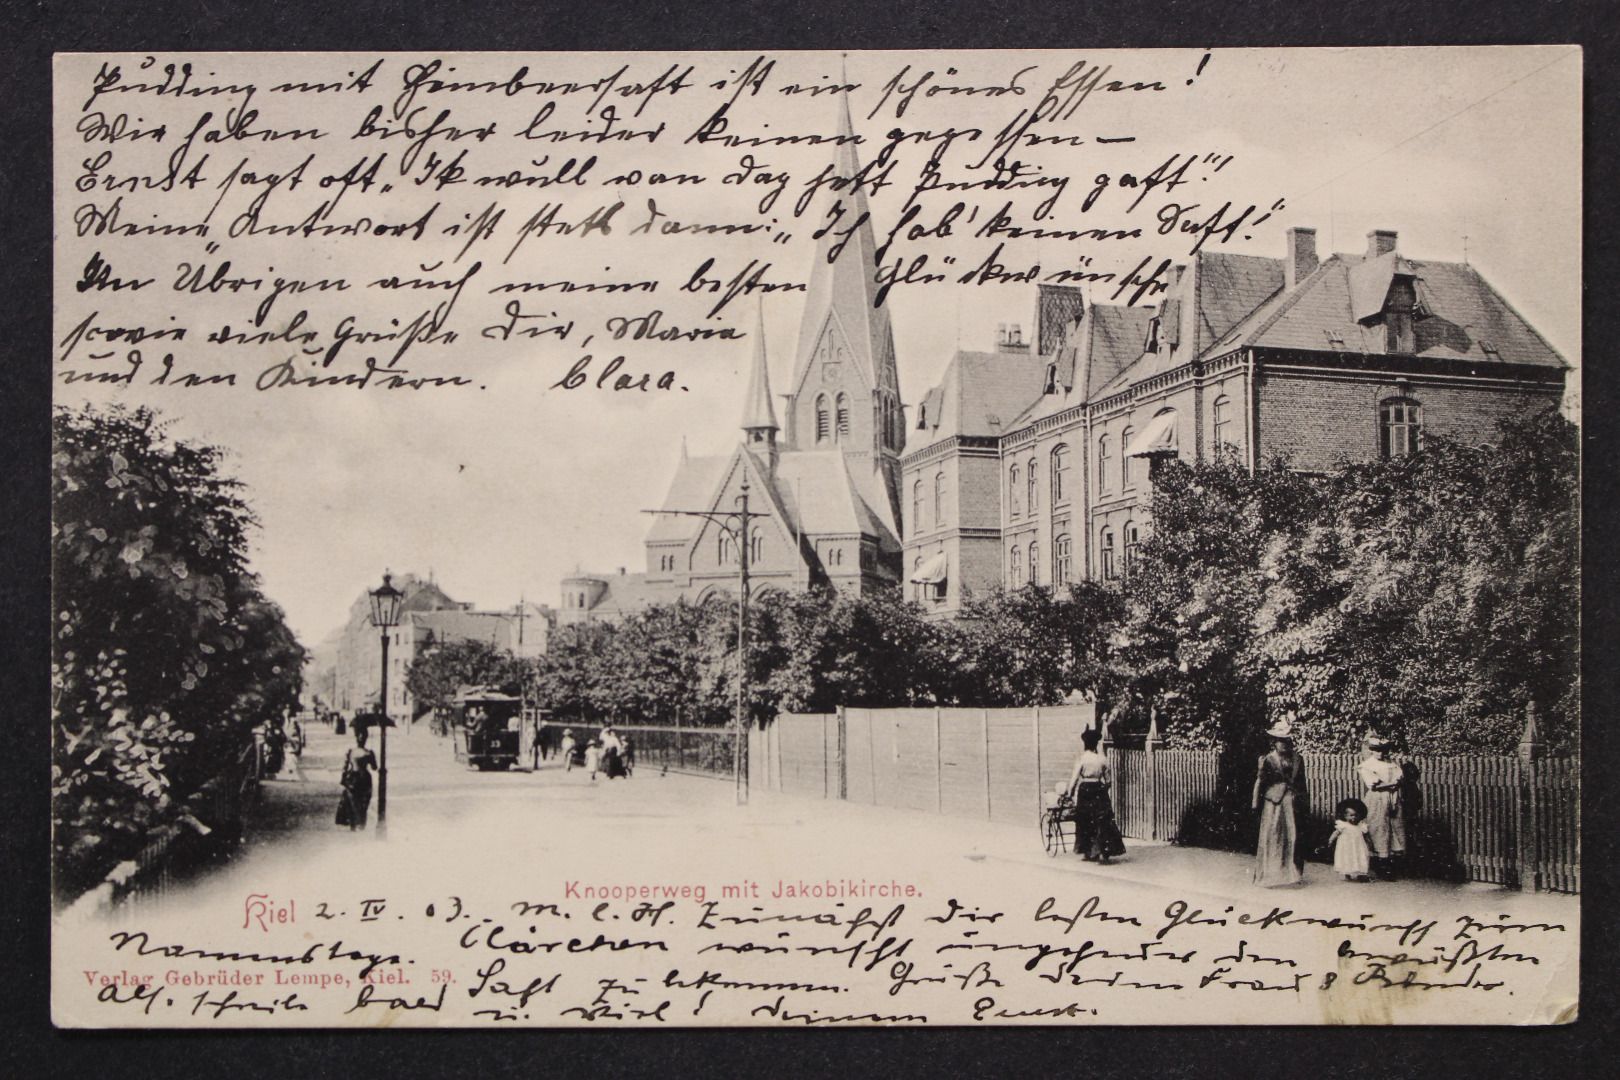 Pudding mit Himbeersaft ist ein schönes Essen!
Wir haben bisher leider keinen gegessen –
Ernst sagt oft „Ik wull van dag hett Pudding gaft“!
Meine Antwort ist stets dann: „Ich hab' keinen Saft!“
Im „Übrigen auch meine besten Glückwünsche
sowie viele Grüße Dir, Maria
und den Kindern. Clara.
Knooperweg mit Jakobikirche.
Kiel 2. IV. 03. M. l. H. Zunächst dir besten Glückwunsch zum
Namenstage. Clärchen wünscht umgehender den bewußten
Verlag Gebrüder Lempe, Kiel. 59.
Saft zu bekommen. Grüße deine Frau
Als. schreibe bald u. viel! deinem Ernst.